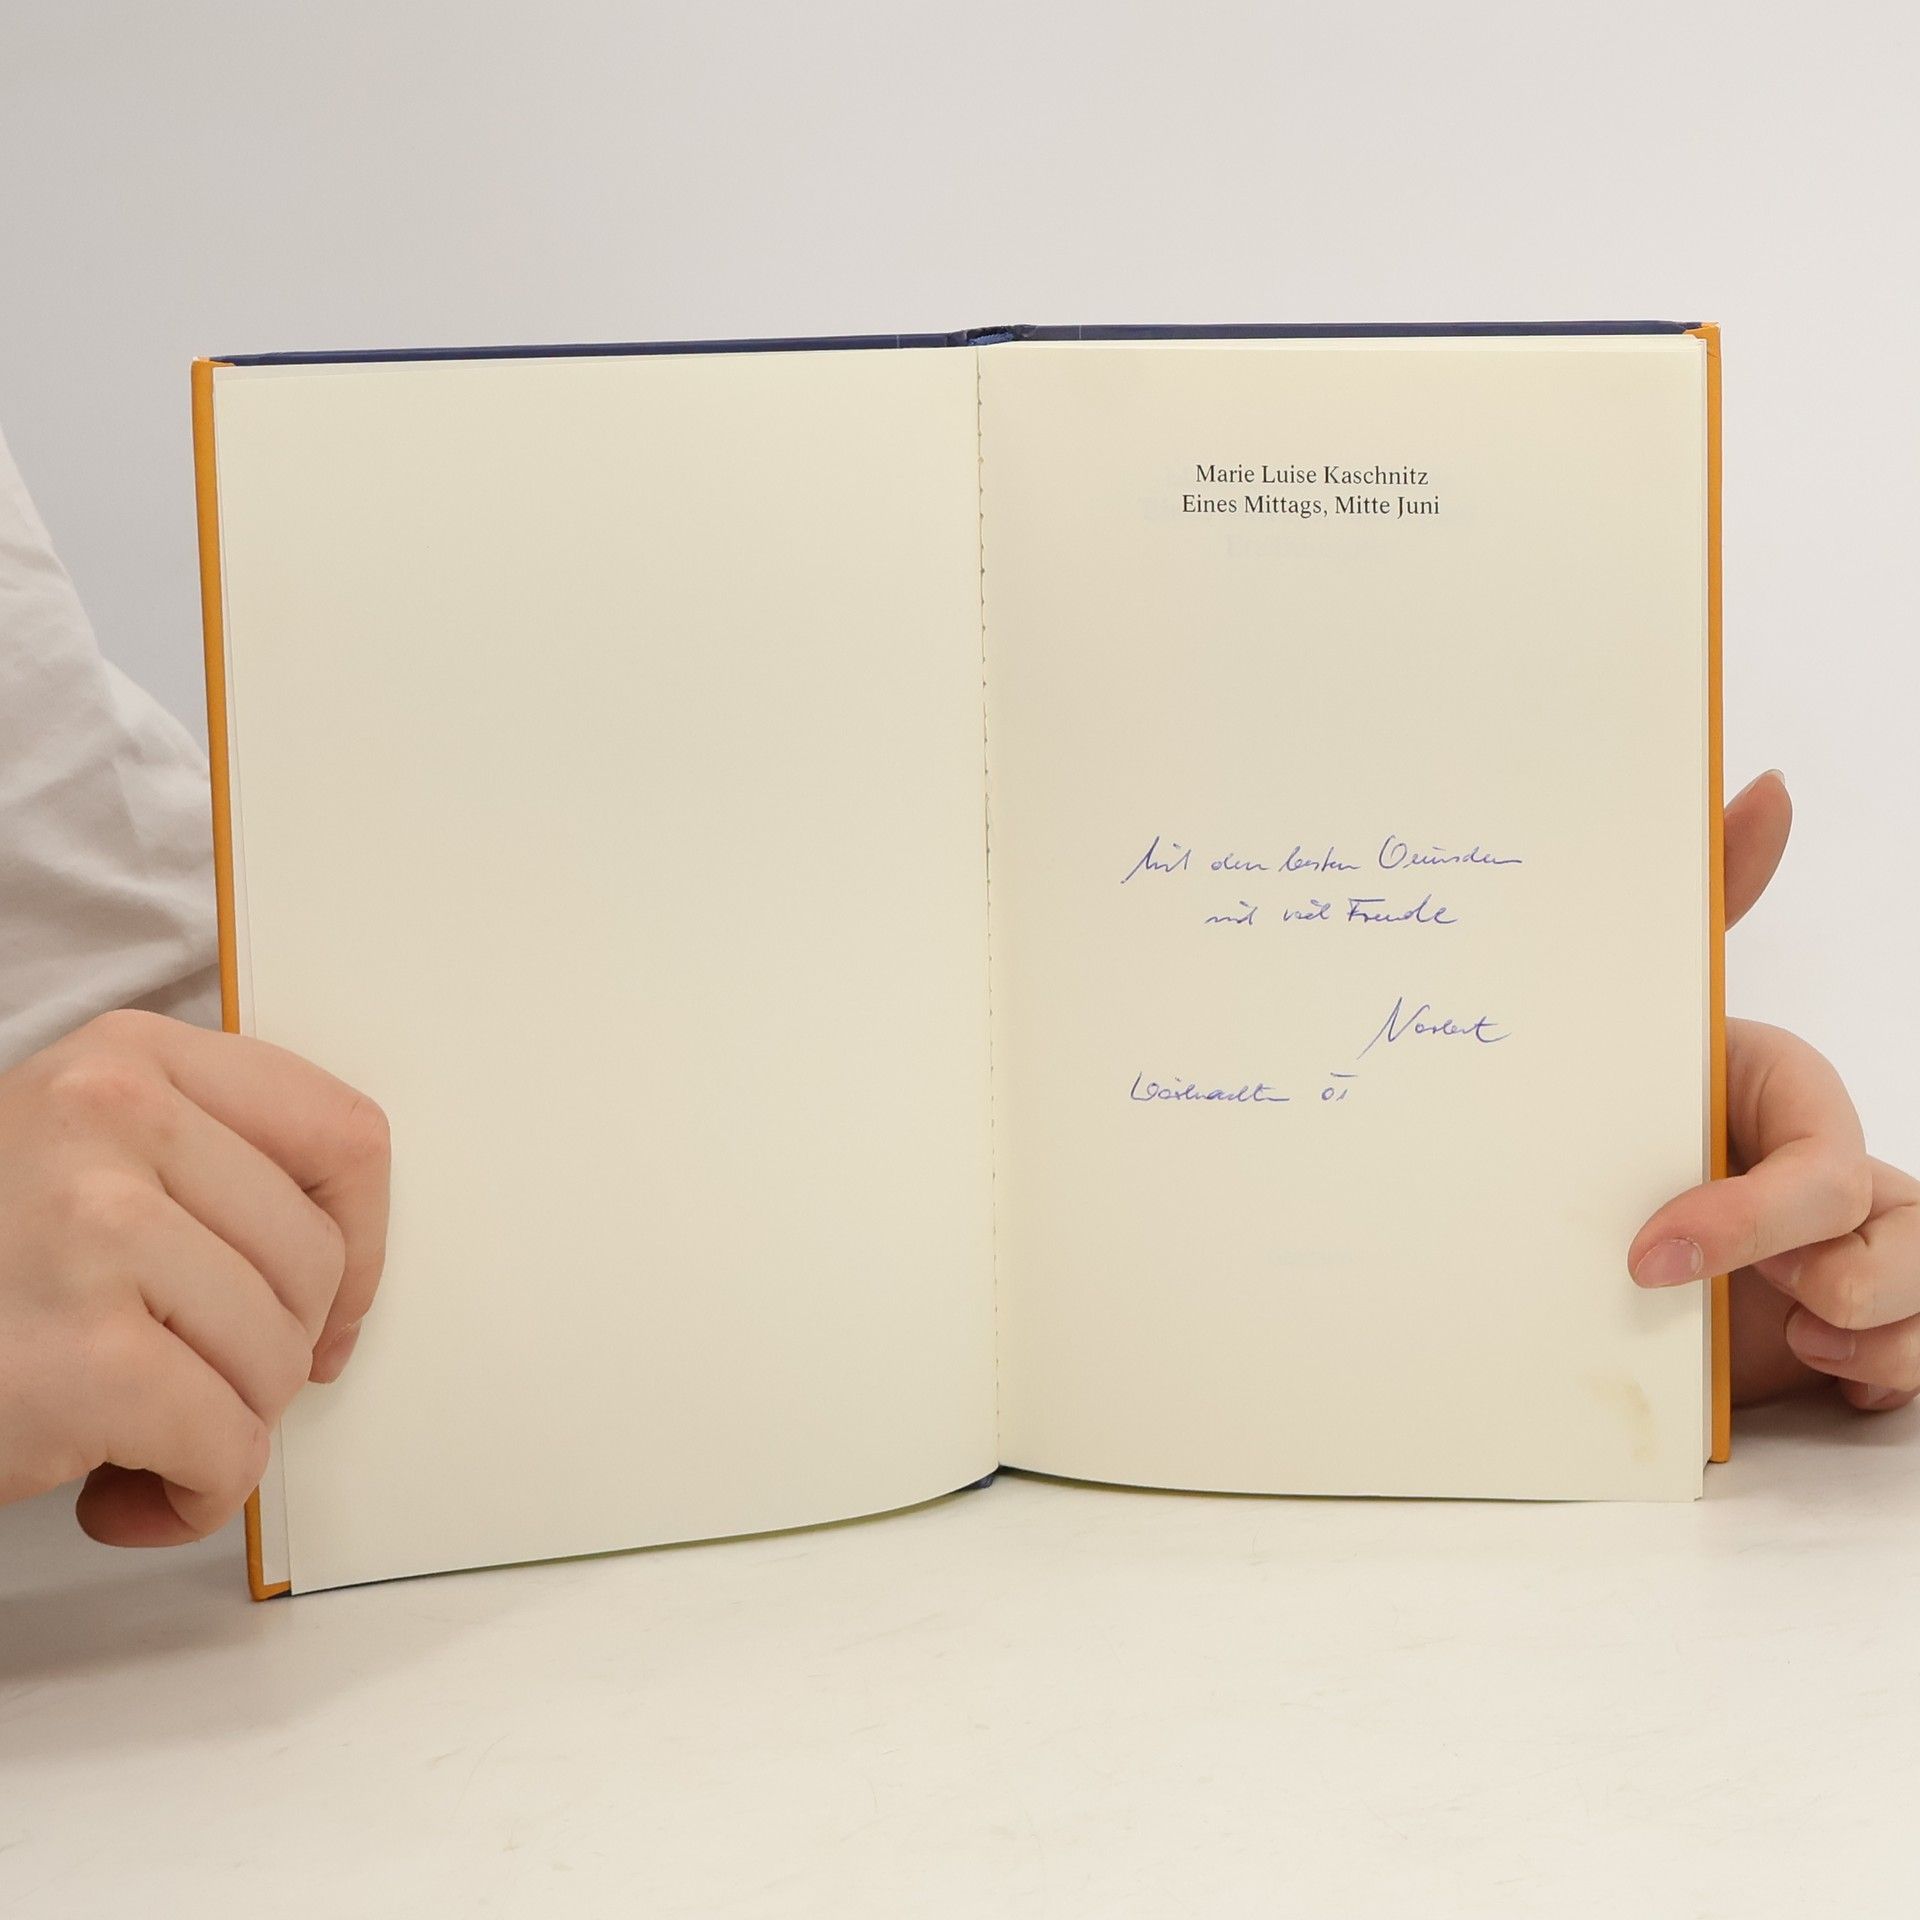 Marie Luise Kaschnitz
Eines Mittags, Mitte Juni
Mit den besten Wünschen
und viel Freude
Norbert
Weihnachten 01